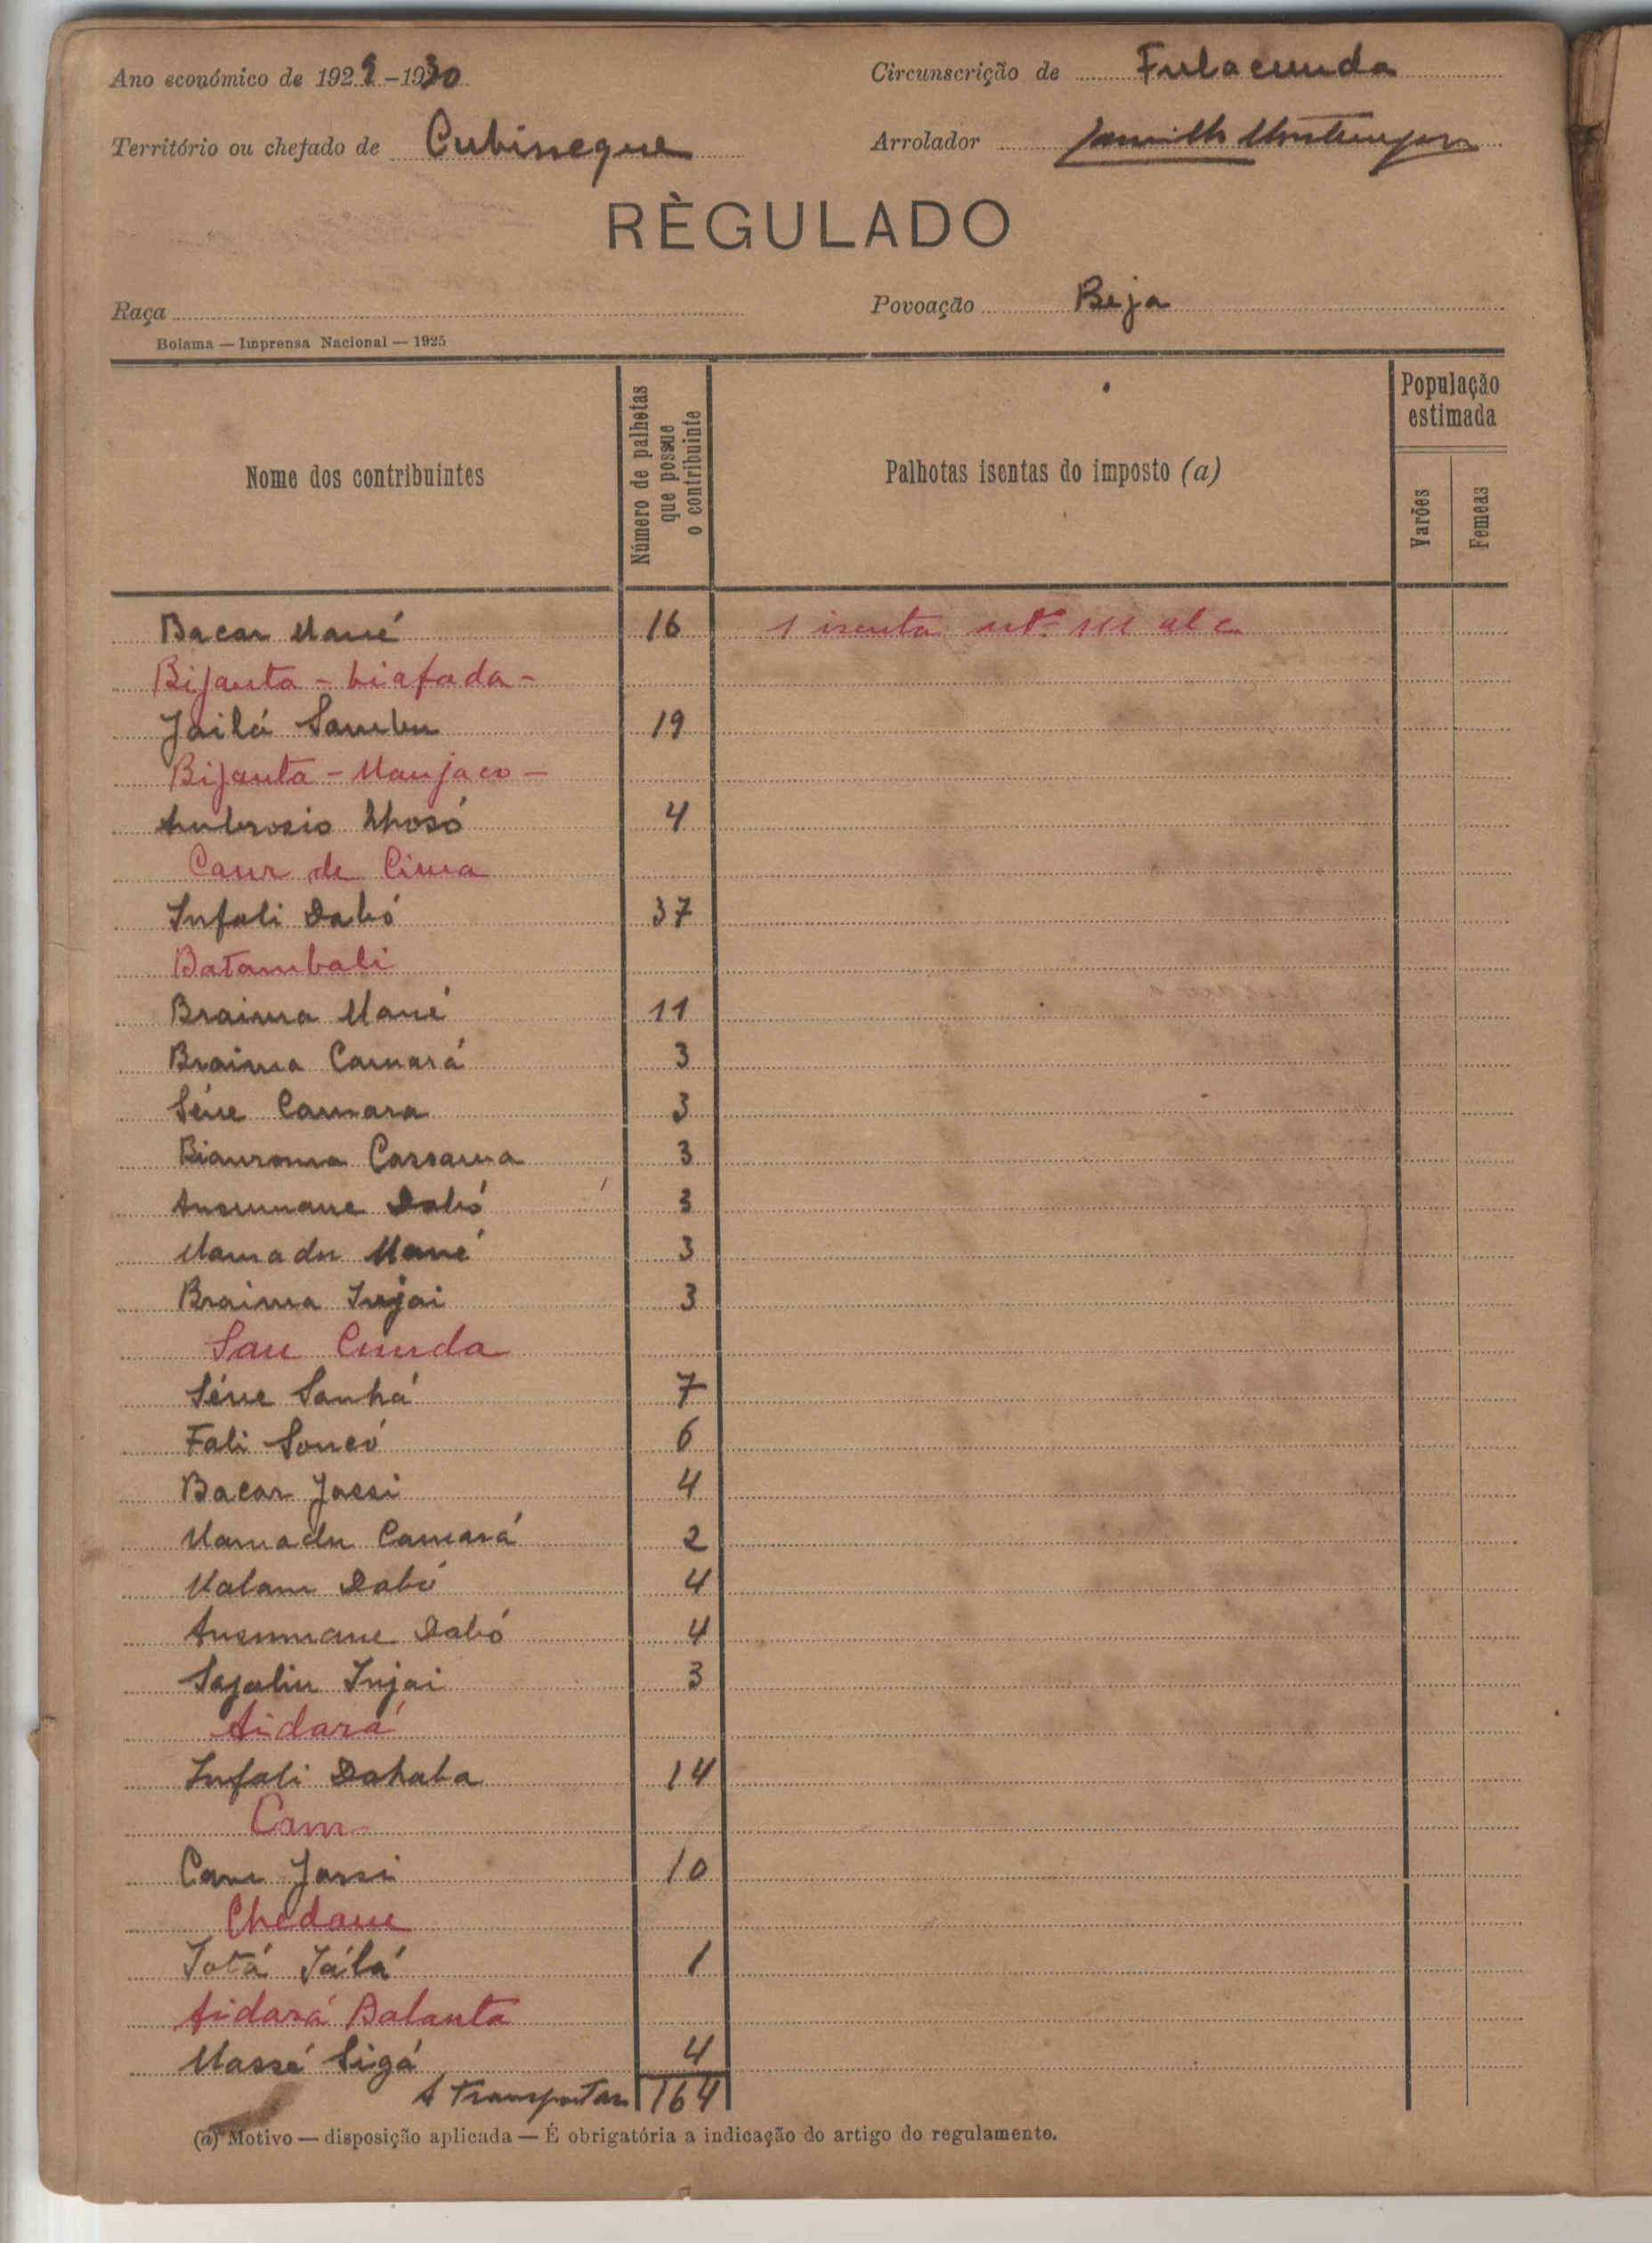 Ano económico de 1929-1930
Circunscrição de Fulacunda
Território ou chefado de Cubisseque
Arrolador
RÈGULADO
Raça
Povoação Beja
Bolama — Imprensa Nacional — 1925
Nome dos contribuintes
Número de palhotas que possue o contribuinte
Palhotas isentas do imposto (a)
População estimada
Varões
Femeas
Bacar Mané 16 1 isenta artº
Bijanta - biafada -
Jailá Sambu 19
Bijanta - Manjaco -
Ambrosio 4
Caur de Cima
Infali Dabó 37
Batambali
Braima Mané 11
Braima Camará 3
Séne Camara 3
Cassama 3
Ansumane Dabó 3
Mamadu Mané 3
Braima Injai 3
San Cunda
Séne Sanhá 7
Fali Soncó 6
Bacar Jassi 4
Mamadu Camará 2
Malam Dabó 4
Ansumane Dabó 4
Injai 3
Aidará
Infali Dahaba 14
Cam
Jassi 10
Chedane
Totá 1
Aidará Balanta
Massé Sigá 4
A Transportar 164
(a) Motivo — disposição aplicada — É obrigatória a indicação do artigo do regulamento.